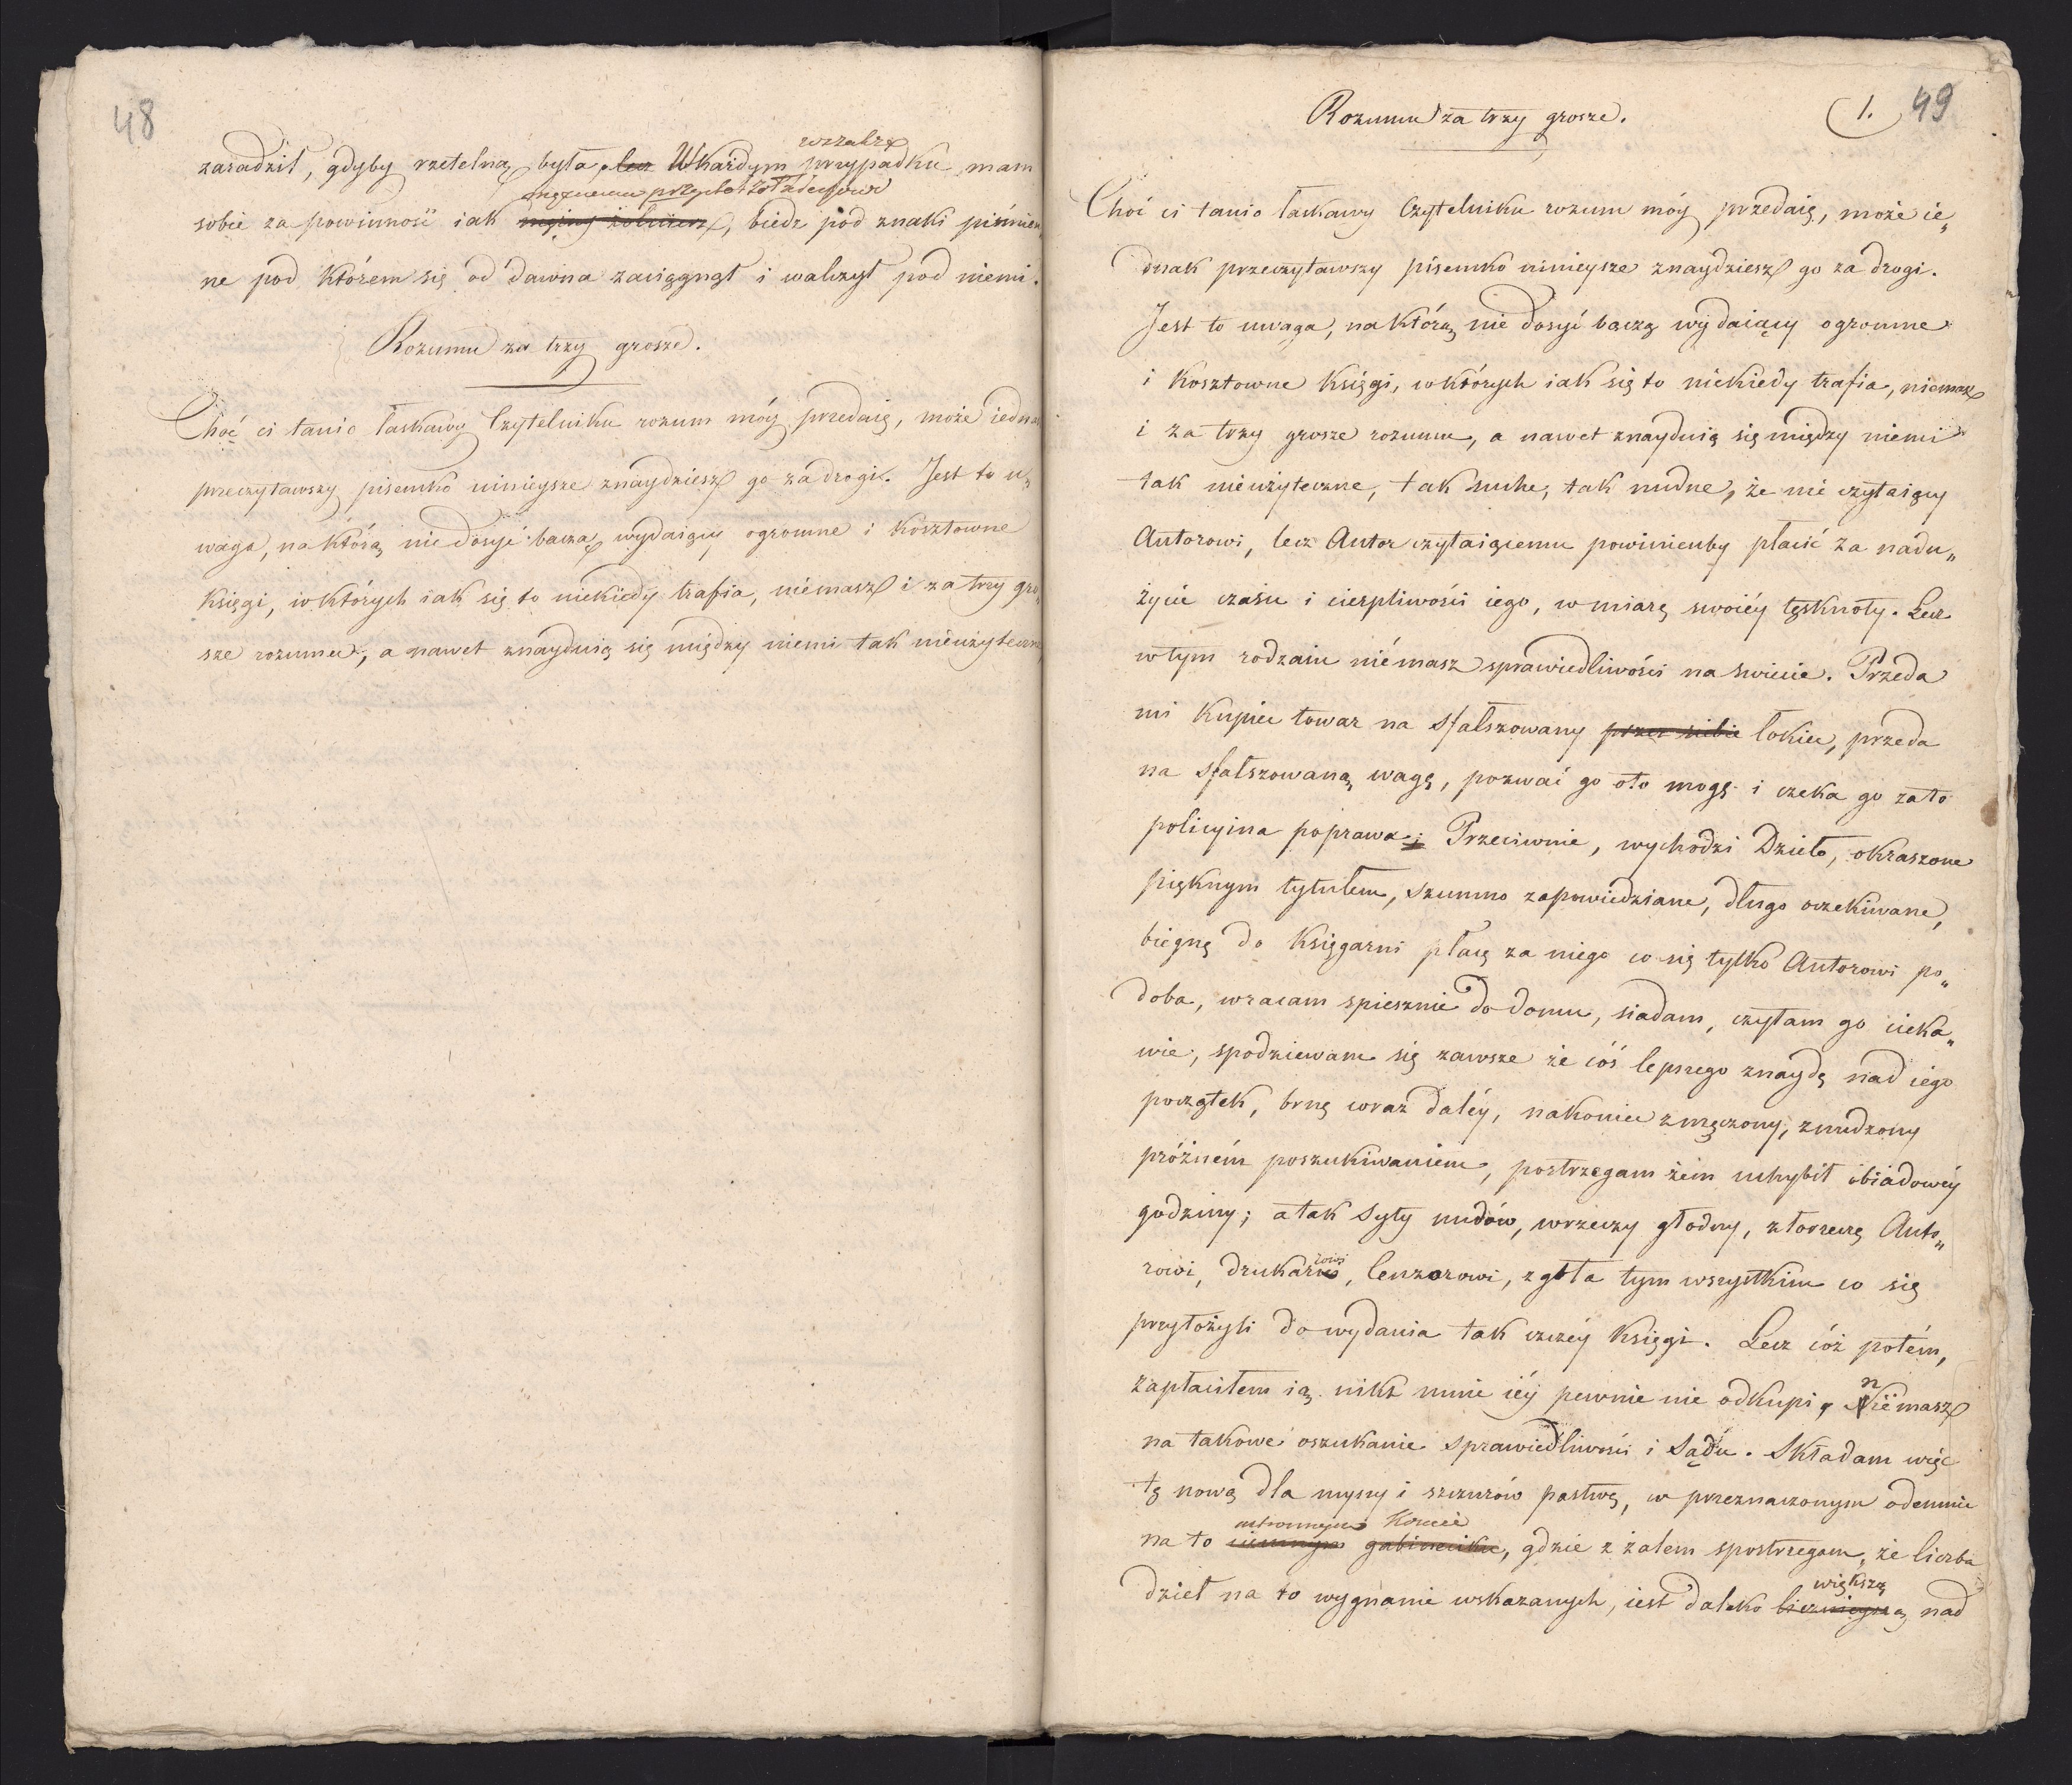 48
zasadził, gdyby rzetelną była, lecz Wkażdym przypadku mam
sobie za powinność iak mężny żołnierz, biedz pod znaki piśmien„
ne pod którem się od dawna zaciągnął i walczył pod niemi.
Rozumu za trzy grosze.
Choć ci tanio łaskawy Czytelniku rozum móy przedaię, może iednak
przeczytawszy pisemko ninieysze znaydziesz go za drogi. Jest to u„
waga, na którą nie dosyć baczą wydaiący ogromne i kosztowne
Księgi, w których iak się to niekiedy trafia, niémasz i za trzy gro„
sze rozumu, a nawet znayduią się między niemi tak nieużyteczne,
Rozumu za trzy grosze.
1. 49
Choć ci tanio łaskawy Czytelniku rozum móy przedaię, może ie„
dnak przeczytawszy pisemko ninieysze znaydziesz go za drogi.
Jest to uwaga, na którą nie dosyć baczą wydaiący ogromne
i kosztowne Księgi, w których iak się to niekiedy trafia, niemasz
i za trzy grosze rozumu, a nawet znayduią się między niemi
tak nieużyteczne, tak suche, tak nudne, że nie czytaiący
Autorowi, lecz Autor czytaiącemu powinienby płacić za nadu„
życie czasu i cierpliwości iego, w miarę swoiéy tęsknoty. Lecz
w tym rodzaiu niémasz sprawiedliwości na świecie. Przeda
mi Kupiec towar na sfałszowany przez siebie łokieć, przeda
na sfałszowaną wagę, pozwać go oto mogę i czeka go zato
policyina poprawa; Przeciwnie, wychodzi Dzieło, okraszone
pięknym tytułem, szumno zapowiedziane, długo oczekiwane,
biegnę do Księgarni płacę za niego co się tylko Autorowi po„
doba, wracam spiesznie do domu, siadam, czytam go cieka„
wie, spodziewam się zawsze że cóś lepszego znaydę nad iego
początek, brnę coraz daléy, nakoniec zmęczony, znudzony
próżném poszukiwaniem, postrzegam żem uchybił obiadowéy
godziny; a tak syty nudów, wrzeczy głodny, złorzeczę Auto„
rowi, drukarzowi, Cenzorowi, zgoła tym wszystkim co się
przyłożyli do wydania tak czczéy Księgi. Lecz cóż potém,
zapłaciłem ią, nikt mnie iéy pewnie nie odkupi, niémasz
na takowe oszukanie sprawiedliwości i Sądu. Składam więc
tę nową dla myszy i szczurów pastwę, w przeznaczonym odemnie
ustronnym Kącie
na to ciemnym gabineciku, gdzie z żalem spostrzegam, że liczba
większą
dzieł na to wygnanie wskazanych, iest daleko licznieyszą nad